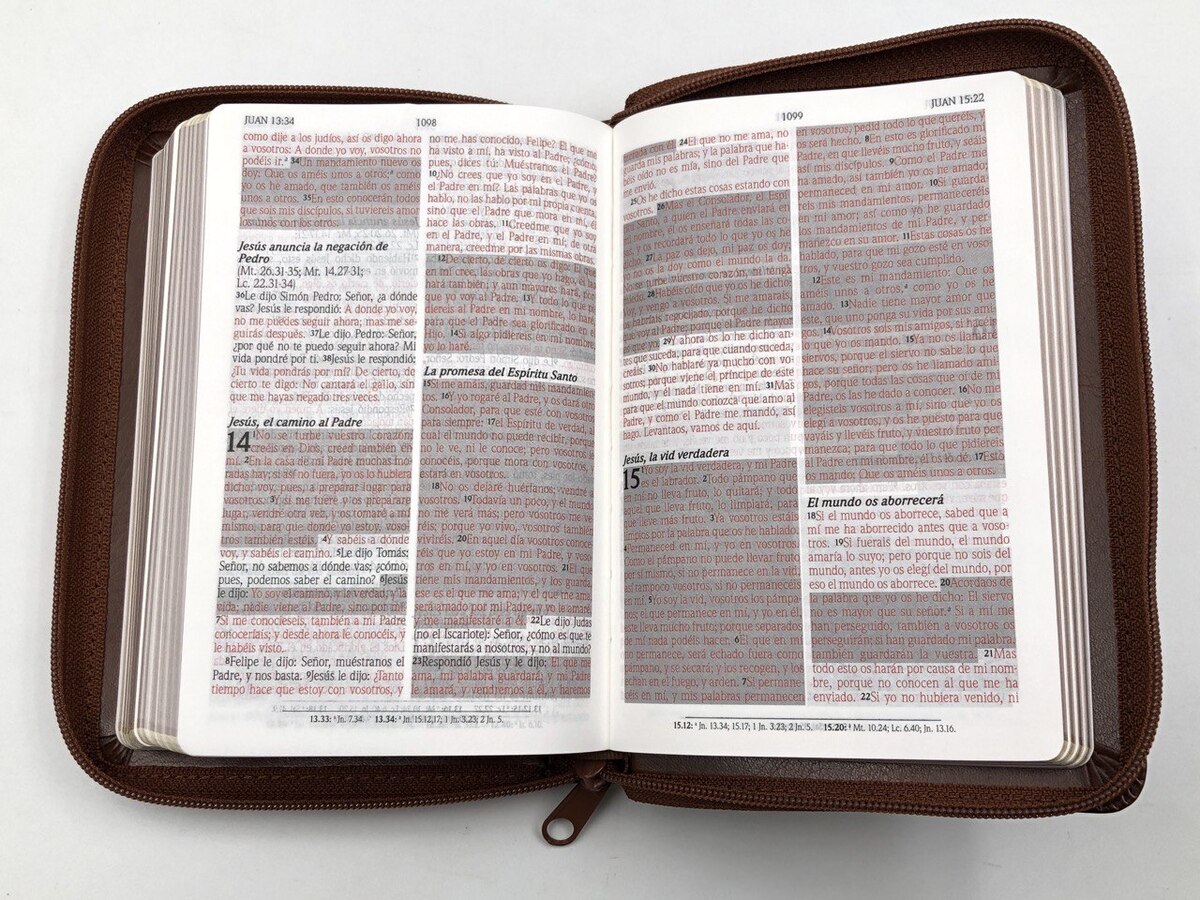 JUAN 13:34
1098
como dije a los judíos, así os digo ahora
a vosotros: A donde yo voy, vosotros no
podéis ir.ª 34Un mandamiento nuevo os
doy: Que os améis unos a otros;ª como
yo os he amado, que también os améis
unos a otros. 35En esto conocerán todos
que sois mis discípulos, si tuviereis amor
los unos con los otros.
Jesús anuncia la negación de
Pedro
(Mt. 26.31-35; Mr. 14.27-31;
Lc. 22.31-34)
36Le dijo Simón Pedro: Señor, ¿a dónde
vas? Jesús le respondió: A donde yo voy,
no me puedes seguir ahora; mas me se-
guirás después. 37Le dijo Pedro: Señor,
¿por qué no te puedo seguir ahora? Mi
vida pondré por ti. 38Jesús le respondió:
¿Tu vida pondrás por mí? De cierto, de
cierto te digo: No cantará el gallo, sin
que me hayas negado tres veces.
Jesús, el camino al Padre
14 1No se turbe vuestro corazón;
creéis en Dios, creed también en
mí. 2En la casa de mi Padre muchas mo-
radas hay; si así no fuera, yo os lo hubiera
dicho; voy, pues, a preparar lugar para
vosotros. 3Y si me fuere y os preparare
lugar, vendré otra vez, y os tomaré a mí
mismo, para que donde yo estoy, voso-
tros también estéis. 4Y sabéis a dónde
voy, y sabéis el camino. 5Le dijo Tomás:
Señor, no sabemos a dónde vas; ¿cómo,
pues, podemos saber el camino? 6Jesús
le dijo: Yo soy el camino, y la verdad, y la
vida; nadie viene al Padre, sino por mí.
7Si me conocieseis, también a mi Padre
conoceríais; y desde ahora le conocéis, y
le habéis visto.
8Felipe le dijo: Señor, muéstranos el
Padre, y nos basta. 9Jesús le dijo: ¿Tanto
tiempo hace que estoy con vosotros, y
no me has conocido, Felipe? El que me
ha visto a mí, ha visto al Padre; ¿cómo,
pues, dices tú: Muéstranos el Padre?
10¿No crees que yo soy en el Padre, y
el Padre en mí? Las palabras que yo os
hablo, no las hablo por mi propia cuenta,
sino que el Padre que mora en mí, él
hace las obras. 11Creedme que yo soy
en el Padre, y el Padre en mí; de otra
manera, creedme por las mismas obras.
12De cierto, de cierto os digo: El que
en mí cree, las obras que yo hago, él las
hará también; y aun mayores hará, por-
que yo voy al Padre. 13Y todo lo que
pidiereis al Padre en mi nombre, lo haré,
para que el Padre sea glorificado en el
Hijo. 14Si algo pidiereis en mi nombre,
yo lo haré.
La promesa del Espíritu Santo
15Si me amáis, guardad mis mandamien-
tos. 16Y yo rogaré al Padre, y os dará otro
Consolador, para que esté con vosotros
para siempre: 17el Espíritu de verdad, al
cual el mundo no puede recibir, porque
no le ve, ni le conoce; pero vosotros le
conocéis, porque mora con vosotros, y
estará en vosotros.
18No os dejaré huérfanos; vendré a
vosotros. 19Todavía un poco, y el mundo
no me verá más; pero vosotros me veréis;
porque yo vivo, vosotros también
viviréis. 20En aquel día vosotros conoce-
réis que yo estoy en mi Padre, y voso-
tros en mí, y yo en vosotros. 21El que
tiene mis mandamientos, y los guarda,
ése es el que me ama; y el que me ama,
será amado por mi Padre, y yo le amaré,
y me manifestaré a él. 22Le dijo Judas
(no el Iscariote): Señor, ¿cómo es que te
manifestarás a nosotros, y no al mundo?
23Respondió Jesús y le dijo: El que me
ama, mi palabra guardará; y mi Padre
le amará, y vendremos a él, y haremos
13.33: ª Jn. 7.34. 13.34: ª Jn. 15.12,17; 1 Jn. 3.23; 2 Jn. 5.
1099
JUAN 15:22
morada con él. 24El que no me ama, no
guarda mis palabras; y la palabra que ha-
béis oído no es mía, sino del Padre que
me envió.
25Os he dicho estas cosas estando con
vosotros. 26Mas el Consolador, el Espí-
ritu Santo, a quien el Padre enviará en
mi nombre, él os enseñará todas las cosas,
y os recordará todo lo que yo os he
dicho. 27La paz os dejo, mi paz os doy;
yo no os la doy como el mundo la da.
No se turbe vuestro corazón, ni tenga
miedo. 28Habéis oído que yo os he dicho:
Voy, y vengo a vosotros. Si me amarais,
os habríais regocijado, porque he dicho
que voy al Padre; porque el Padre mayor
es que yo. 29Y ahora os lo he dicho an-
tes que suceda, para que cuando suceda,
creáis. 30No hablaré ya mucho con vo-
sotros; porque viene el príncipe de este
mundo, y él nada tiene en mí. 31Mas
para que el mundo conozca que amo al
Padre, y como el Padre me mandó, así
hago. Levantaos, vamos de aquí.
Jesús, la vid verdadera
15 1Yo soy la vid verdadera, y mi Padre
es el labrador. 2Todo pámpano que
en mí no lleva fruto, lo quitará; y todo
aquel que lleva fruto, lo limpiará, para
que lleve más fruto. 3Ya vosotros estáis
limpios por la palabra que os he hablado.
4Permaneced en mí, y yo en vosotros.
Como el pámpano no puede llevar fruto
por sí mismo, si no permanece en la vid,
así tampoco vosotros, si no permanecéis
en mí. 5Yo soy la vid, vosotros los pámpa-
nos; el que permanece en mí, y yo en él,
éste lleva mucho fruto; porque separados
de mí nada podéis hacer. 6El que en mí
no permanece, será echado fuera como
pámpano, y se secará; y los recogen, y los
echan en el fuego, y arden. 7Si permane-
céis en mí, y mis palabras permanecen
en vosotros, pedid todo lo que queréis, y
os será hecho. 8En esto es glorificado mi
Padre, en que llevéis mucho fruto, y seáis
así mis discípulos. 9Como el Padre me
ha amado, así también yo os he amado;
permaneced en mi amor. 10Si guarda-
reis mis mandamientos, permaneceréis
en mi amor; así como yo he guardado
los mandamientos de mi Padre, y per-
manezco en su amor. 11Estas cosas os he
hablado, para que mi gozo esté en voso-
tros, y vuestro gozo sea cumplido.
12Este es mi mandamiento: Que os
améis unos a otros,ª como yo os he
amado. 13Nadie tiene mayor amor que
este, que uno ponga su vida por sus ami-
gos. 14Vosotros sois mis amigos, si hacéis
lo que yo os mando. 15Ya no os llamaré
siervos, porque el siervo no sabe lo que
hace su señor; pero os he llamado ami-
gos, porque todas las cosas que oí de mi
Padre, os las he dado a conocer. 16No me
elegisteis vosotros a mí, sino que yo os
elegí a vosotros, y os he puesto para que
vayáis y llevéis fruto, y vuestro fruto per-
manezca; para que todo lo que pidiereis
al Padre en mi nombre, él os lo dé. 17Esto
os mando: Que os améis unos a otros.
El mundo os aborrecerá
18Si el mundo os aborrece, sabed que a
mí me ha aborrecido antes que a voso-
tros. 19Si fuerais del mundo, el mundo
amaría lo suyo; pero porque no sois del
mundo, antes yo os elegí del mundo, por
eso el mundo os aborrece. 20Acordaos de
la palabra que yo os he dicho: El siervo
no es mayor que su señor.ª Si a mí me
han perseguido, también a vosotros os
perseguirán; si han guardado mi palabra,
también guardarán la vuestra. 21Mas
todo esto os harán por causa de mi nom-
bre, porque no conocen al que me ha
enviado. 22Si yo no hubiera venido, ni
15.12: ª Jn. 13.34; 15.17; 1 Jn. 3.23; 2 Jn. 5. 15.20: ª Mt. 10.24; Lc. 6.40; Jn. 13.16.